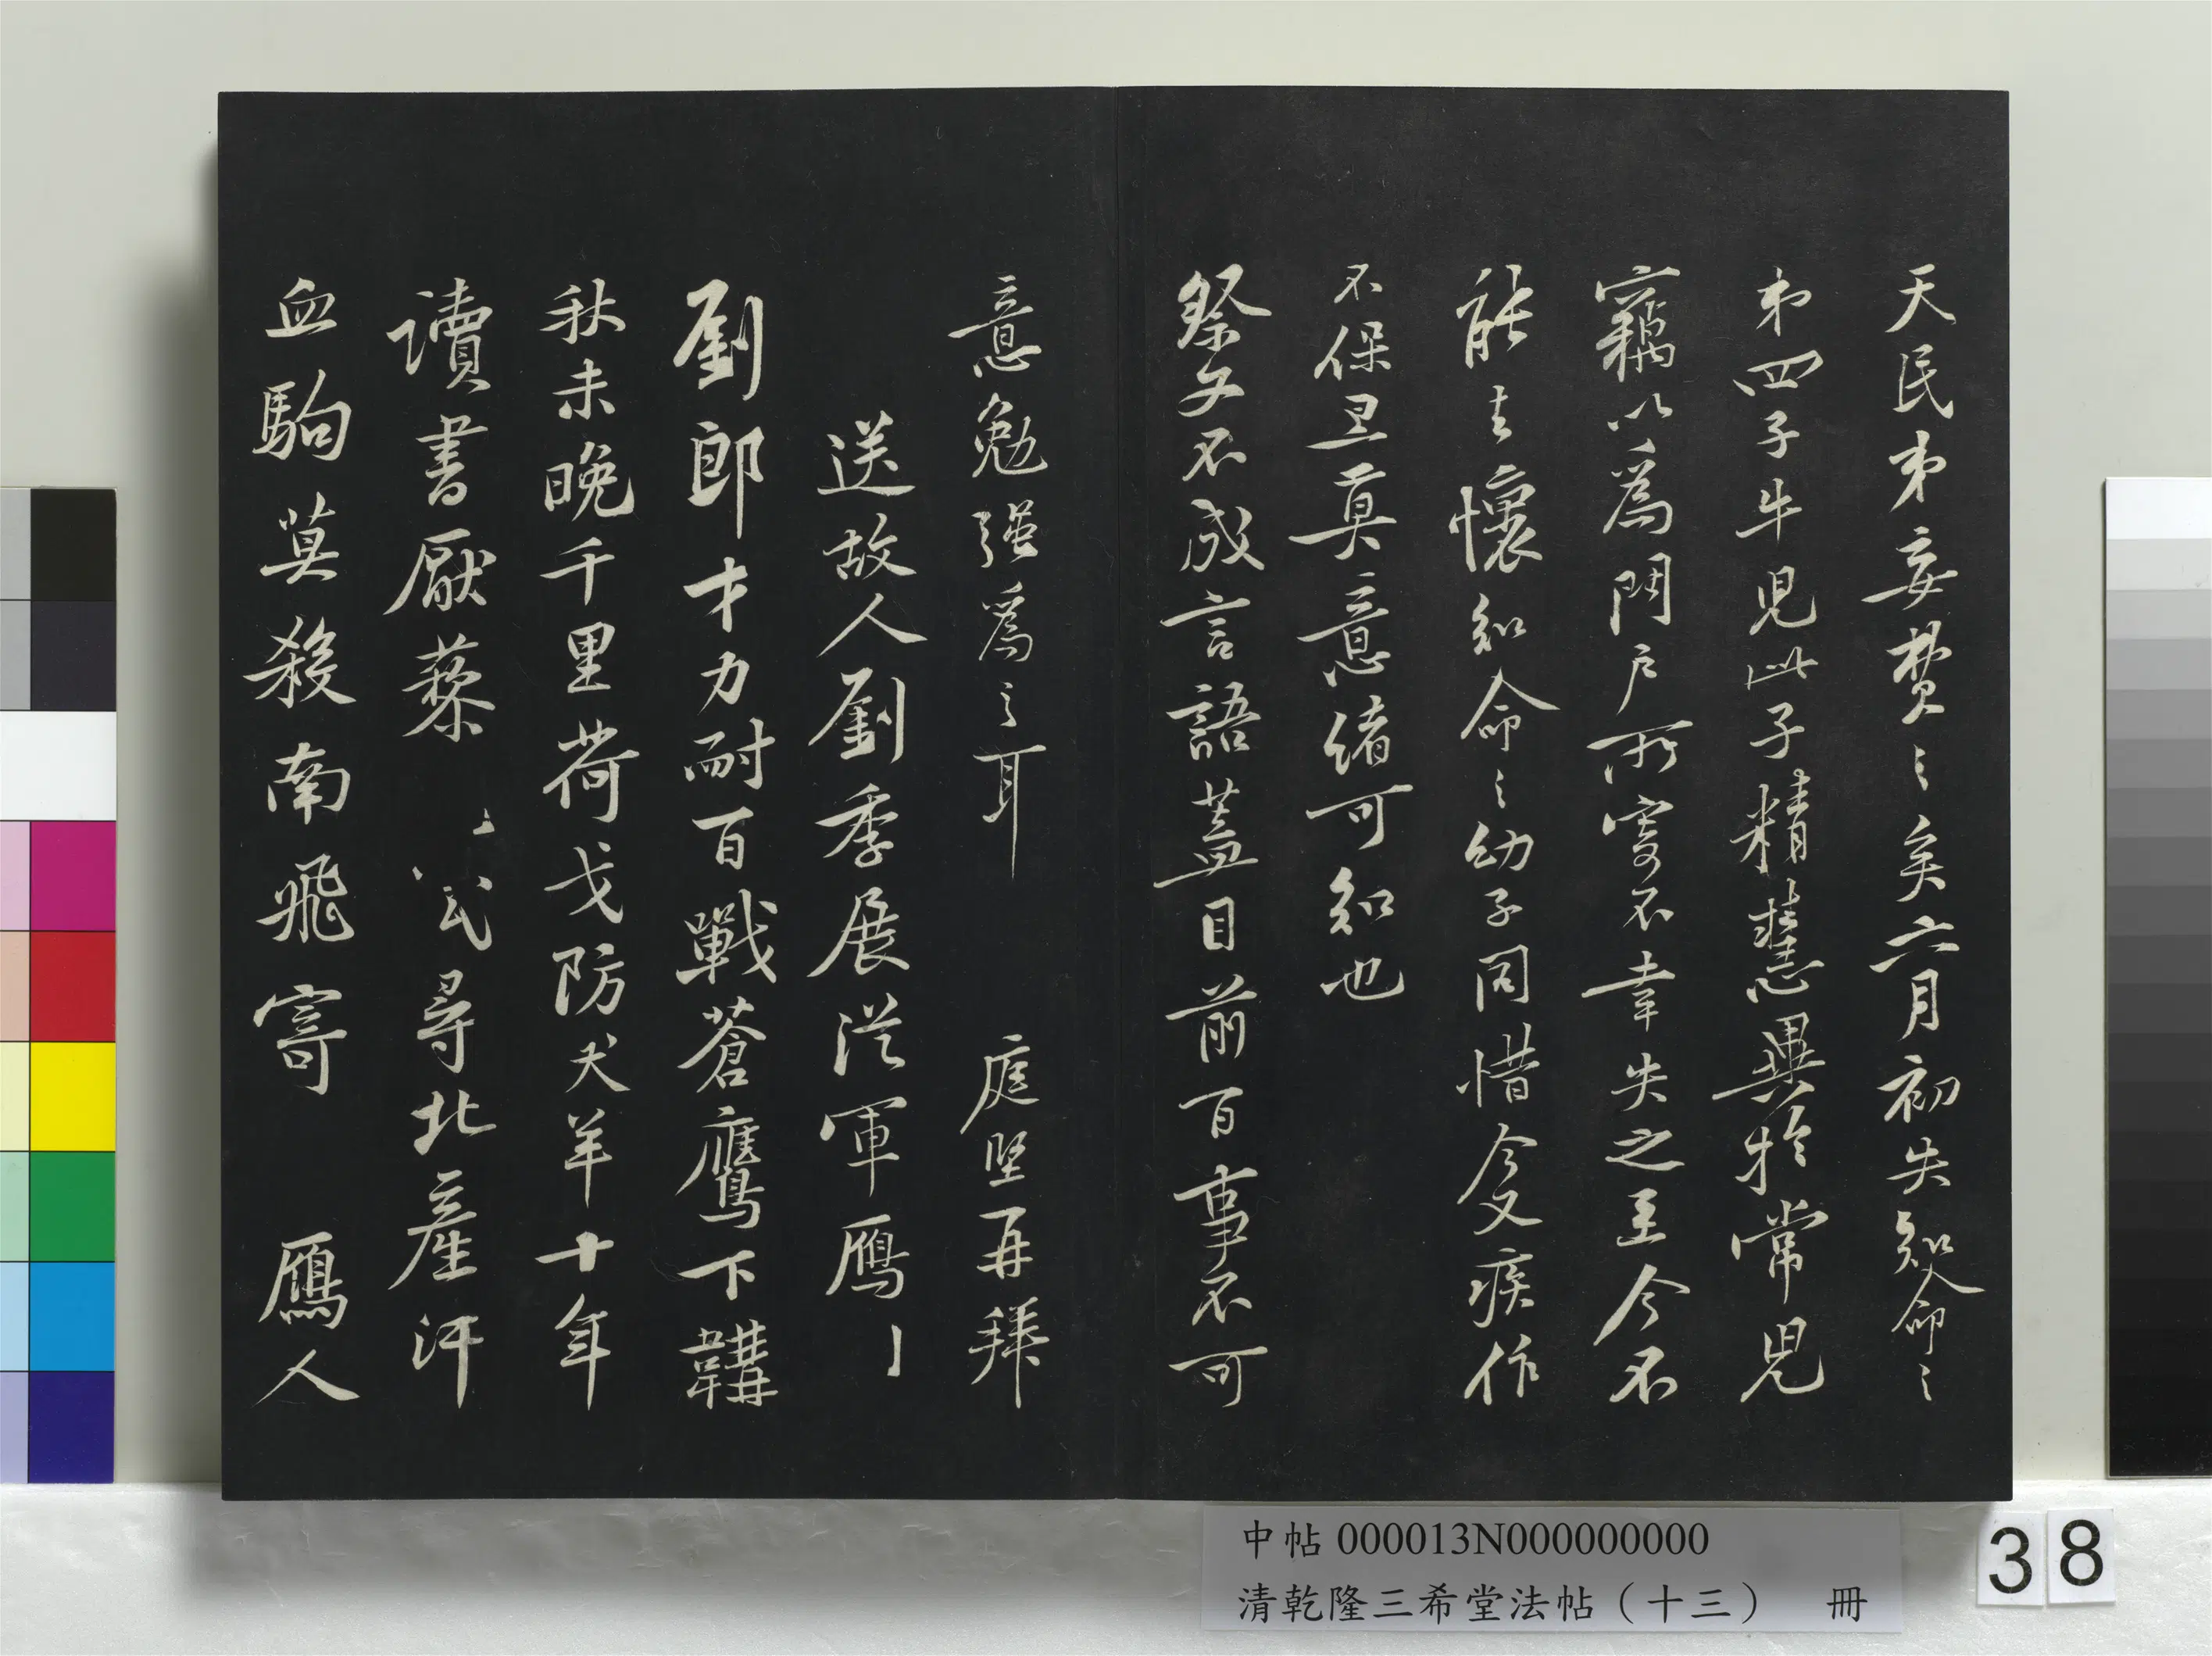 天民弟妄費〻矣六月初失知命〻
弟四子牛児此子精慧異於常児
竊以為門戶所寄不幸失之至今不
能去懷知命〻幼子同惜今又疾作
不保旦莫意緒可知也
祭文不成言語蓋目前百事不可
意勉強為之耳 庭堅再拜
送故人劉季展從軍鴈
劉郎才力耐百戰蒼鷹下韝
秋未晚千里荷戈防犬羊十年
讀書厭藜 尋北產汗
血駒莫殺南飛寄 鴈人
中帖 000013N000000000
清乾隆三希堂法帖（十三） 冊
38